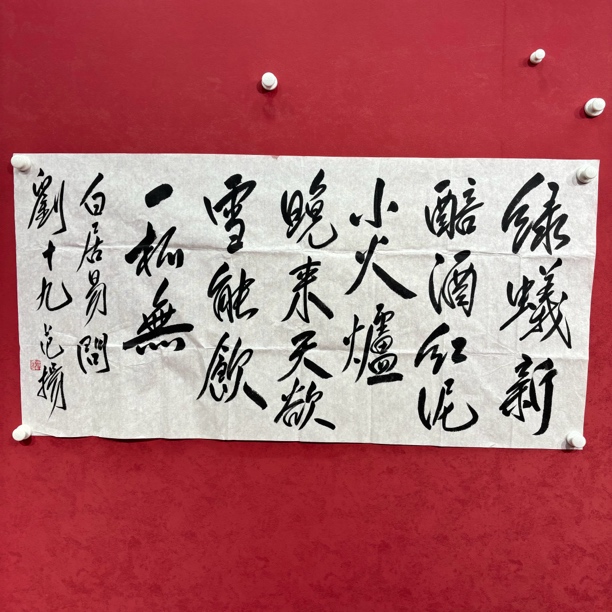 绿蟻新
醅酒红泥
小火爐
晚来天欲
雪能飲
一杯無
白居易問
劉十九范揚